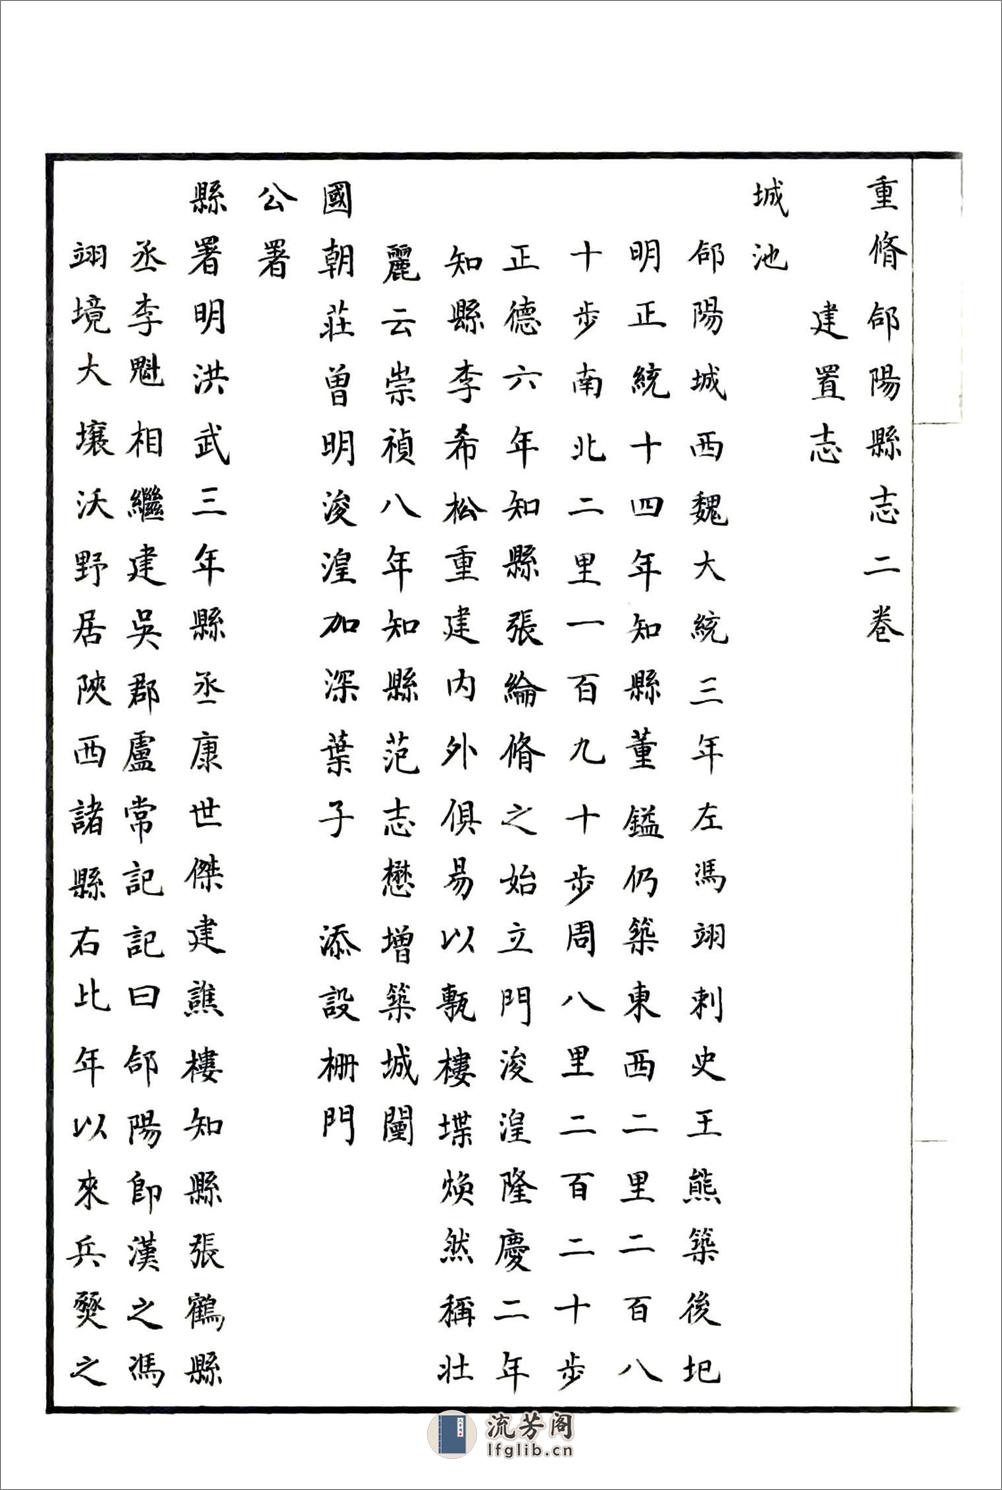 重脩郃陽縣志二卷
建置志
城池
郃陽城西魏大統三年左馮翊刺史王熊築後圮
明正統十四年知縣董鎰仍築東西二里二百八
十步南北二里一百九十步周八里二百二十步
正德六年知縣張綸脩之始立門浚湟隆慶二年
知縣李希松重建內外俱易以甎樓堞煥然稱壯
麗云崇禎八年知縣范志懋增築城闉
國朝莊曾明浚湟加深葉子 添設柵門
公署
縣署明洪武三年縣丞康世傑建譙樓知縣張鶴縣
丞李魁相繼建吳郡盧常記記曰郃陽即漢之馮
翊境大壤沃野居陝西諸縣右比年以來兵燹之
流芳阁
lfglib.cn